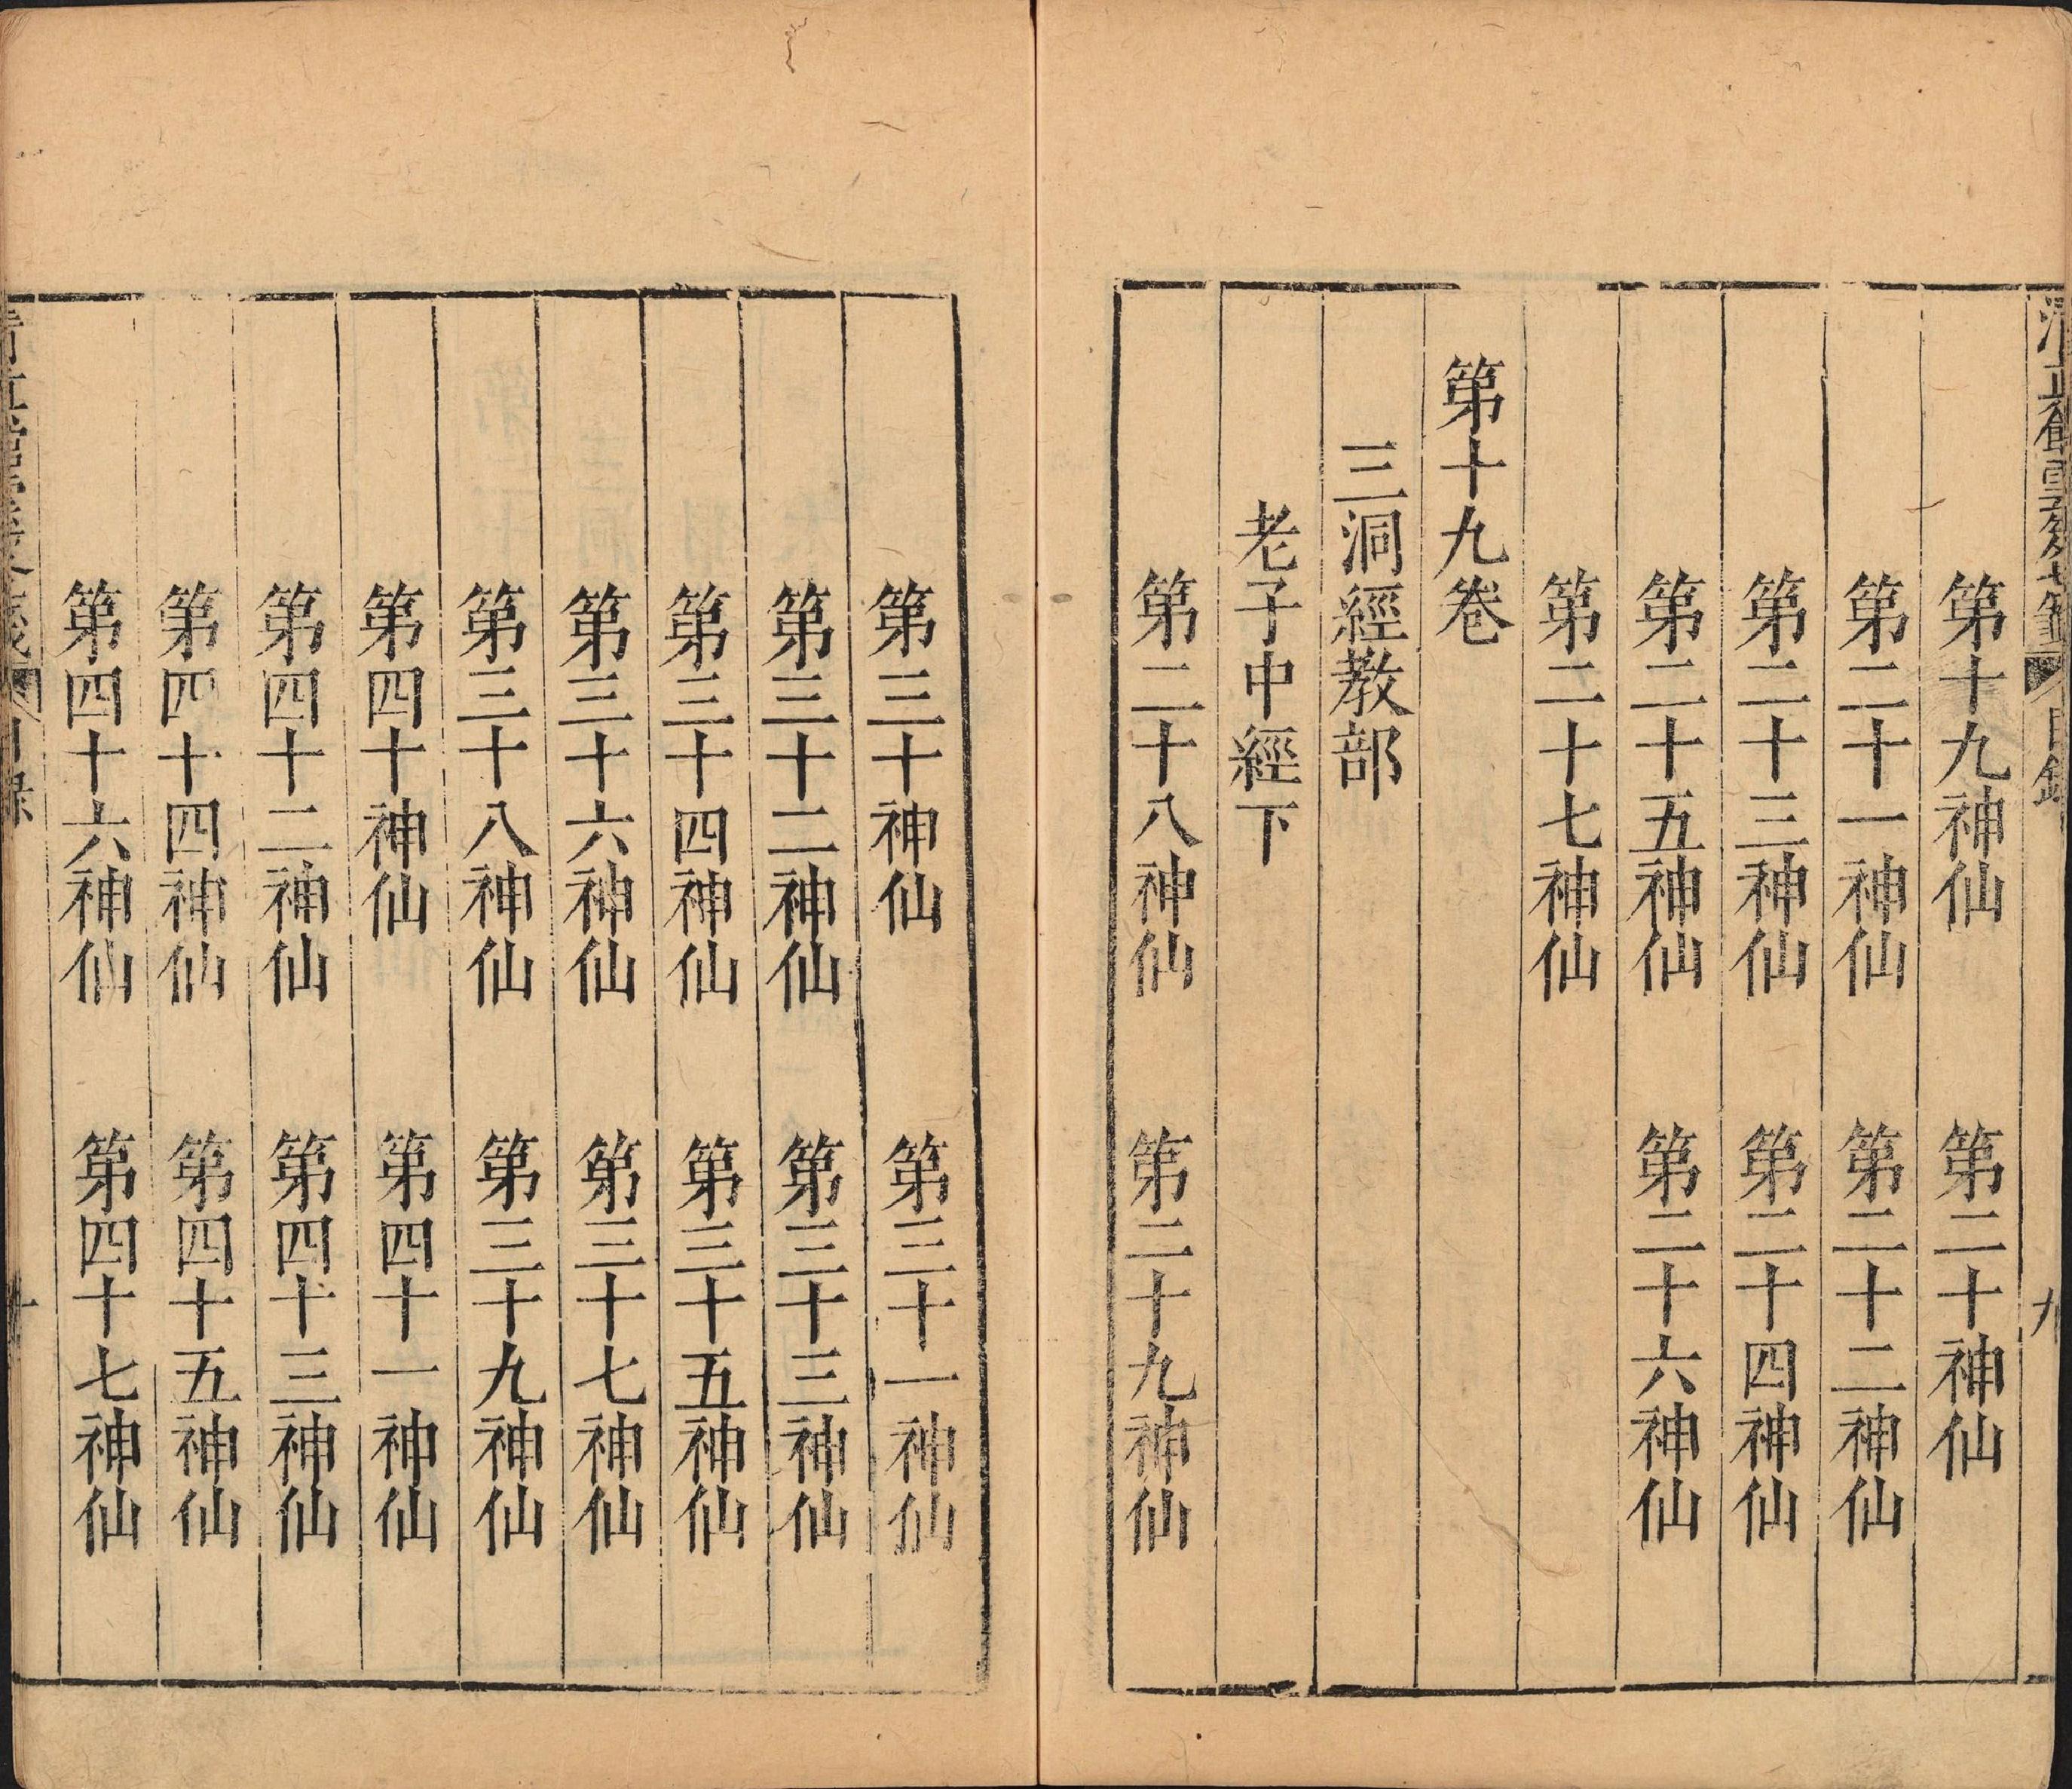 第十九神仙　第二十神仙
第二十一神仙　第二十二神仙
第二十三神仙　第二十四神仙
第二十五神仙　第二十六神仙
第二十七神仙
第十九卷
三洞經教部
老子中經下
第二十八神仙　第二十九神仙
第三十神仙　第三十一神仙
第三十二神仙　第三十三神仙
第三十四神仙　第三十五神仙
第三十六神仙　第三十七神仙
第三十八神仙　第三十九神仙
第四十神仙　第四十一神仙
第四十二神仙　第四十三神仙
第四十四神仙　第四十五神仙
第四十六神仙　第四十七神仙